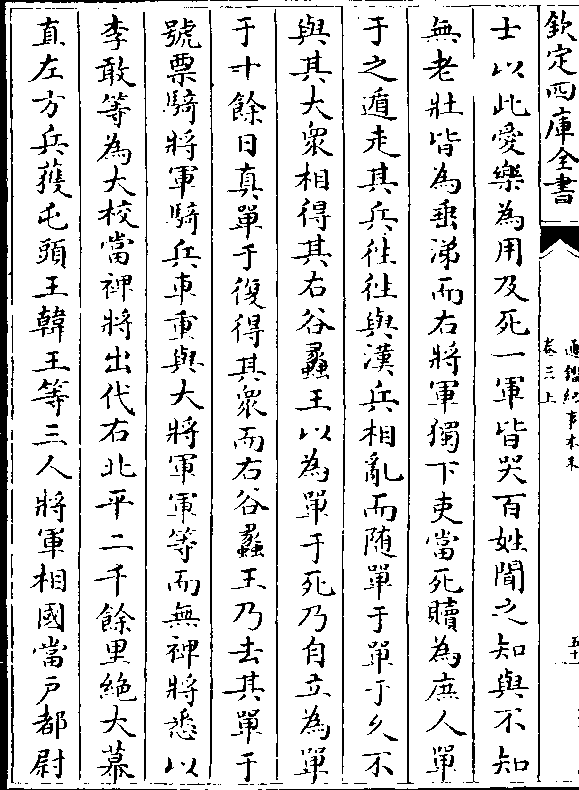 欽定四庫全書
通鑑紀事本末
卷三上
五十
士以此愛樂為用及死一軍皆哭百姓聞之知與不知
無老壯皆為垂涕而右將軍獨下吏當死贖為庶人單
于之遁走其兵往往與漢兵相亂而随單于單于久不
與其大衆相得其右谷蠡王以為單于死乃自立為單
于十餘日真單于復得其衆而右谷蠡王乃去其單于
號票騎將軍騎兵車重與大將軍軍等而無裨將悉以
李敢等為大校當裨將出代右北平二千餘里絶大幕
直左方兵獲屯頭王韓王等三人將軍相國當戶都尉